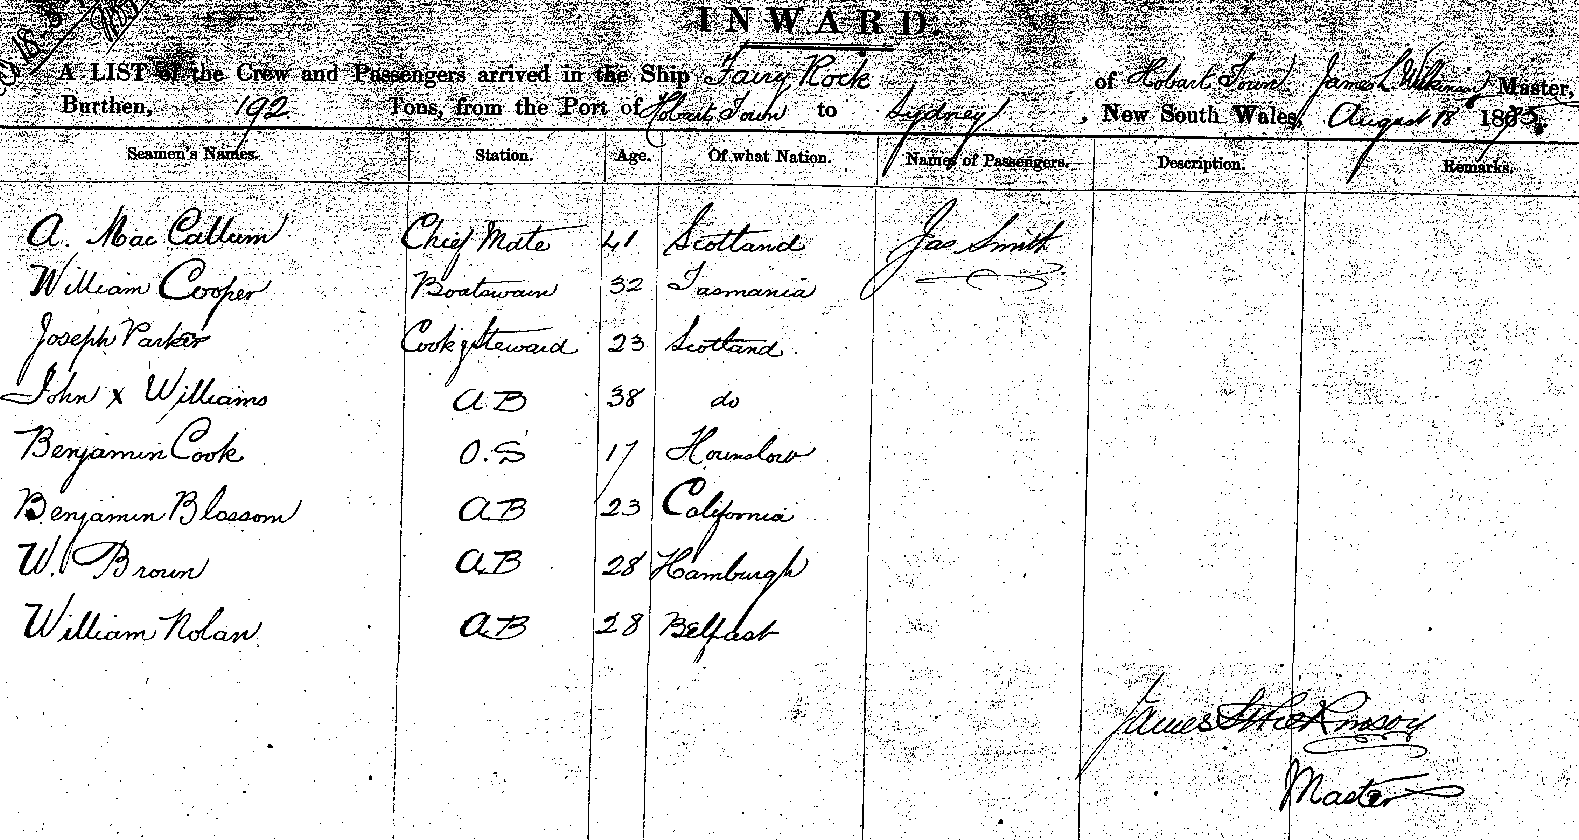 INWARD.
A LIST of the Crew and Passengers arrived in the Ship Fairy Rock of Hobart Town James L. Wilkinson Master,
Burthen, 192 Tons, from the Port of Hobart Town to Sydney, New South Wales, August 18 1875.
Seamen's Names. Station. Age. Of what Nation. Names of Passengers. Description. Remarks.
A. Mac Callum Chief Mate 41 Scotland Jas Smith
William Cooper Boatswain 32 Tasmania
Joseph Parker Cook & Steward 23 Scotland
John x Williams AB 38 do
Benjamin Cook O.S 17 Hounslow
Benjamin Blossom AB 23 California
W. Brown AB 28 Hamburgh
William Nolan AB 28 Belfast
James Wilkinson
Master